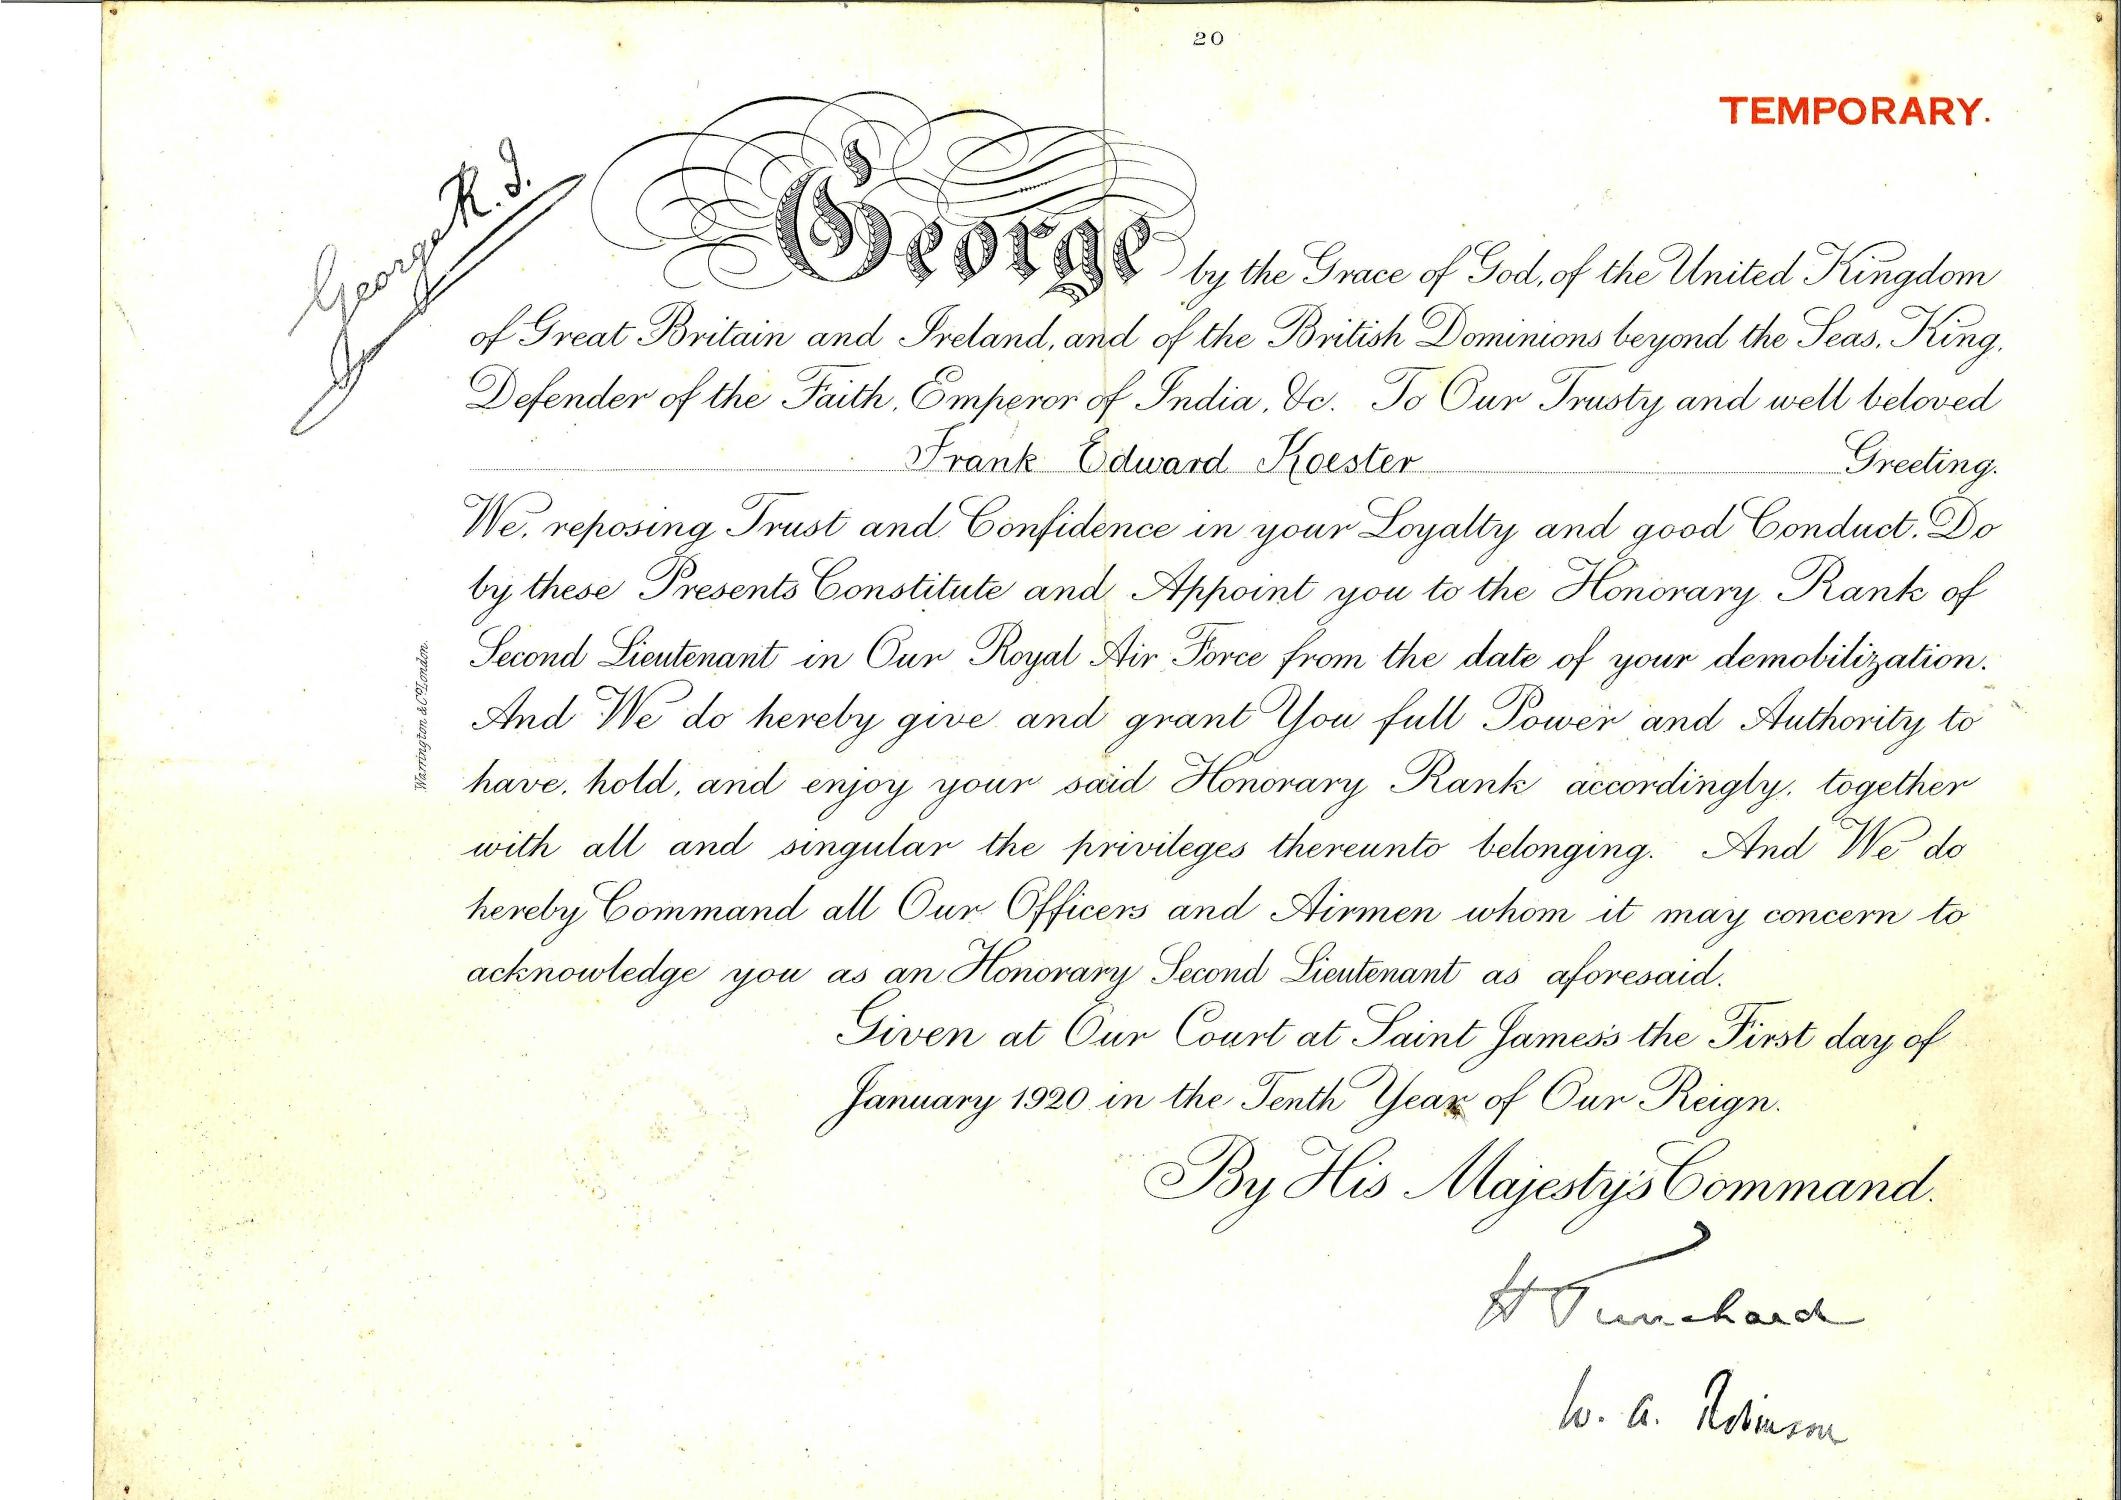 20
TEMPORARY.
George R.I.
George by the Grace of God, of the United Kingdom
of Great Britain and Ireland, and of the British Dominions beyond the Seas, King,
Defender of the Faith, Emperor of India, &c. To Our Trusty and well beloved
Frank Edward Koester Greeting.
We, reposing Trust and Confidence in your Loyalty and good Conduct, Do
by these Presents Constitute and Appoint you to the Honorary Rank of
Second Lieutenant in Our Royal Air Force from the date of your demobilization.
And We do hereby give and grant You full Power and Authority to
have, hold, and enjoy your said Honorary Rank accordingly, together
with all and singular the privileges thereunto belonging. And We do
hereby Command all Our Officers and Airmen whom it may concern to
acknowledge you as an Honorary Second Lieutenant as aforesaid.
Given at Our Court at Saint James's the First day of
January 1920 in the Tenth Year of Our Reign.
By His Majesty's Command.
H Trenchard
W. A. Robinson
Warrington & Co. London.